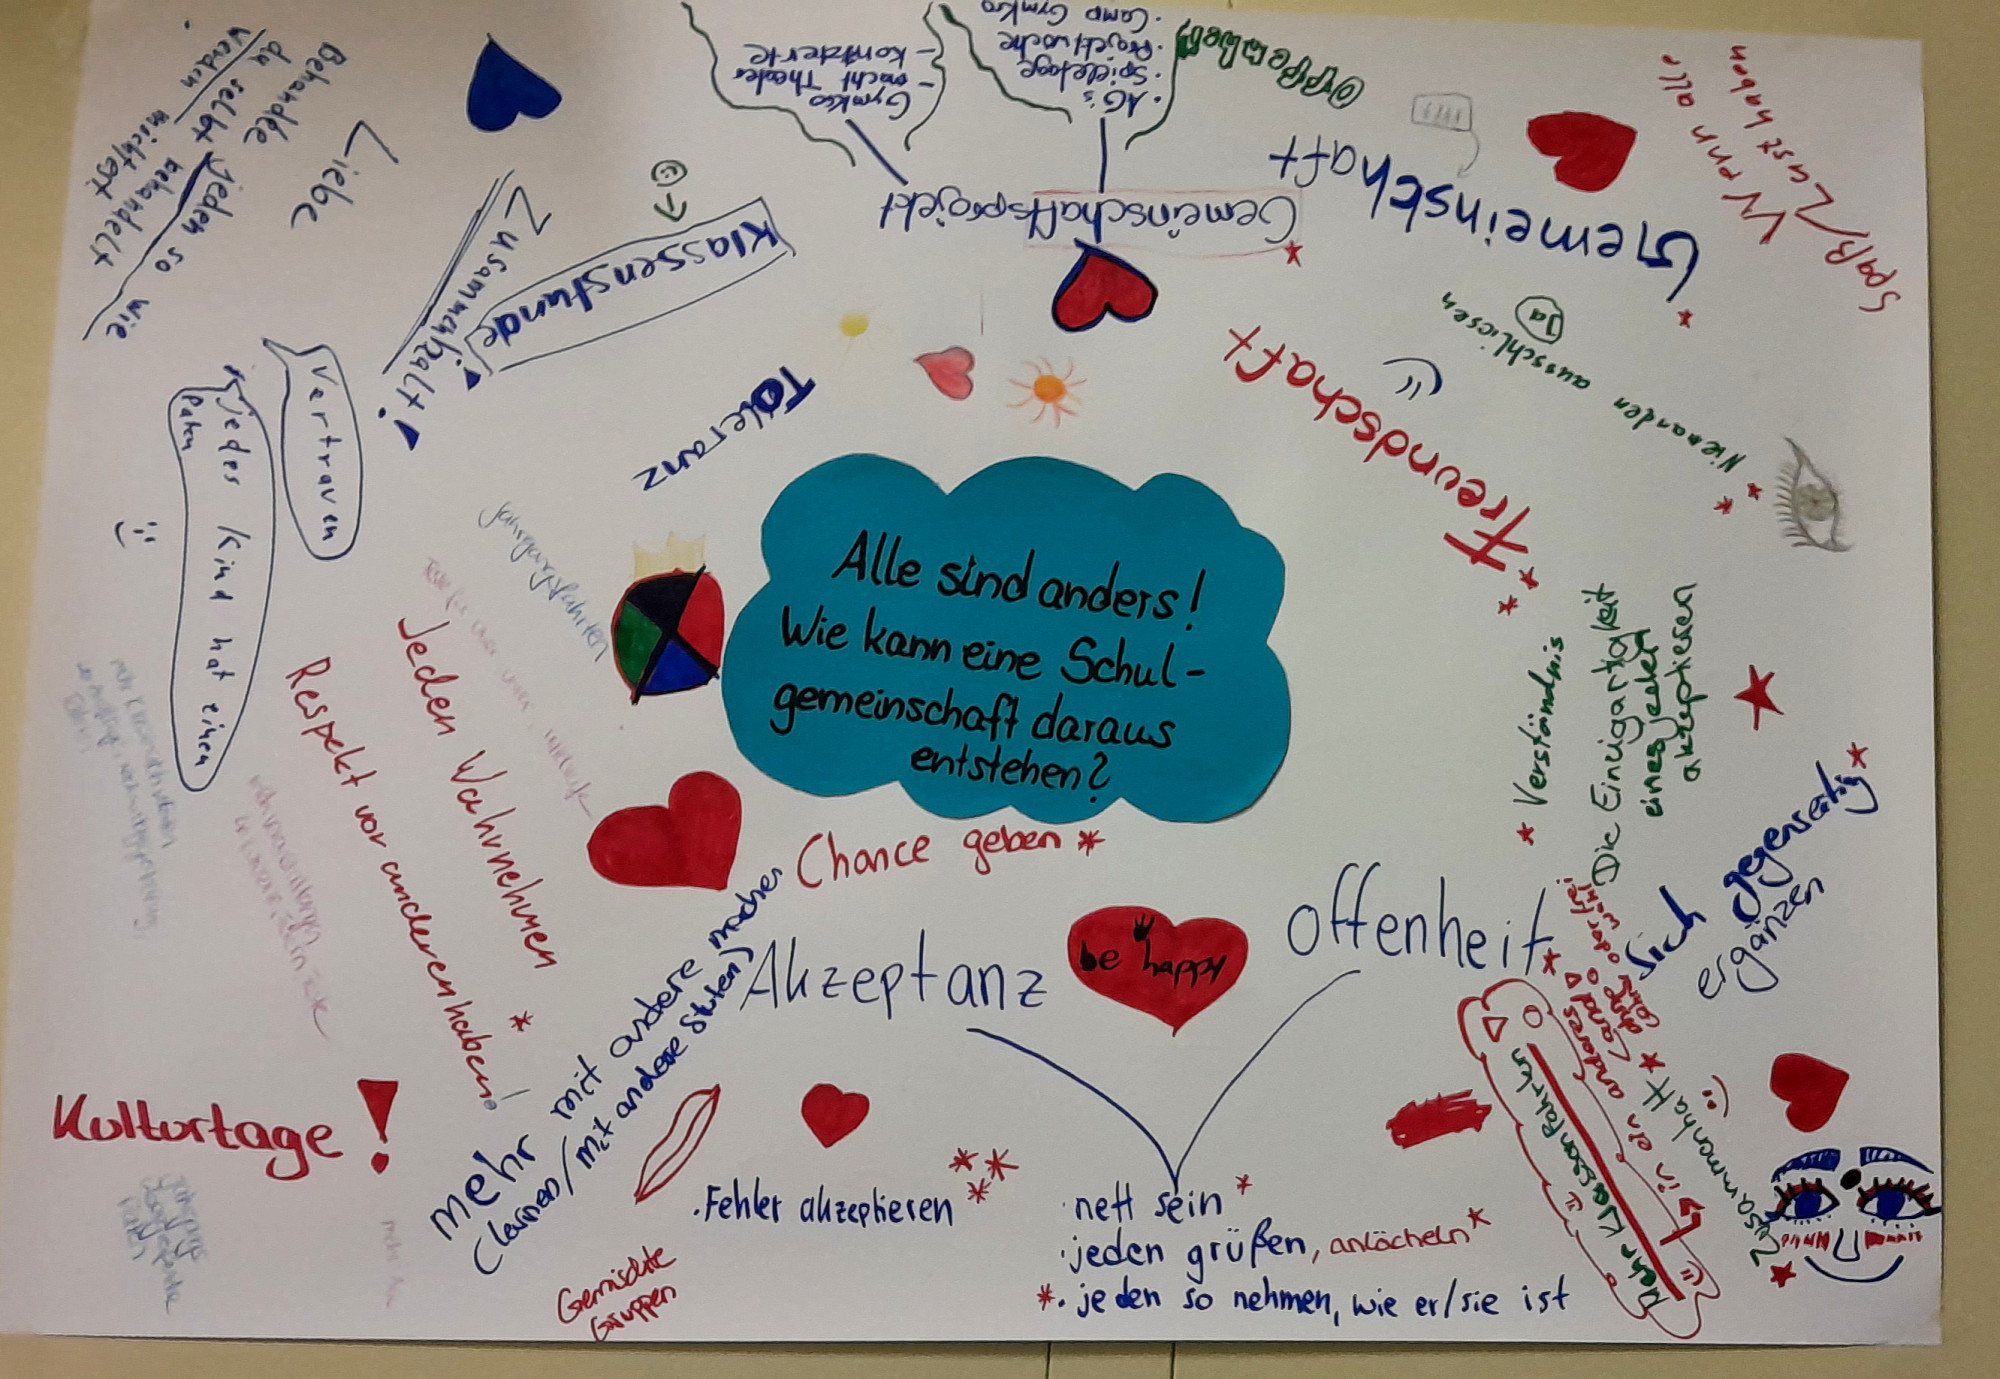 Alle sind anders!
Wie kann eine Schul-
gemeinschaft daraus
entstehen?
Behandle
jeden so wie
du selbst
behandelt
werden
möchtest
Liebe
Zusammehalt!
Klassenstunde
Gymkro
- macht Theater
- Konzerte
• AG's
• Spieletage
• Projektwoche
• Camp Gymkro
Gemeinschaftsprojekt
Offenheit
Gemeinschaft
Wenn alle
Spaß/Lust haben
Niemanden ausschliesen
Ja
Freundschaft
Toleranz
Vertrauen
jedes Kind hat einen
Paten
Jahrgangsfahrten
Jeden Wahrnehmen
Respekt vor anderen haben!
Kulturtage!
mehr mit andere machen
(lernen/mit andere Stufen)
Gemischte
Gruppen
Chance geben *
Akzeptanz
be happy
Offenheit
• Fehler akzeptieren
• nett sein *
• jeden grüßen, anlächeln *
*• jeden so nehmen, wie er/sie ist
* Verständnis
Die Einzigartigkeit
eines jeden
akzeptieren
Sich gegenseitig
ergänzen
* Zusammenhalt
Mehr Klassenfahrten
in ein anderes
Land